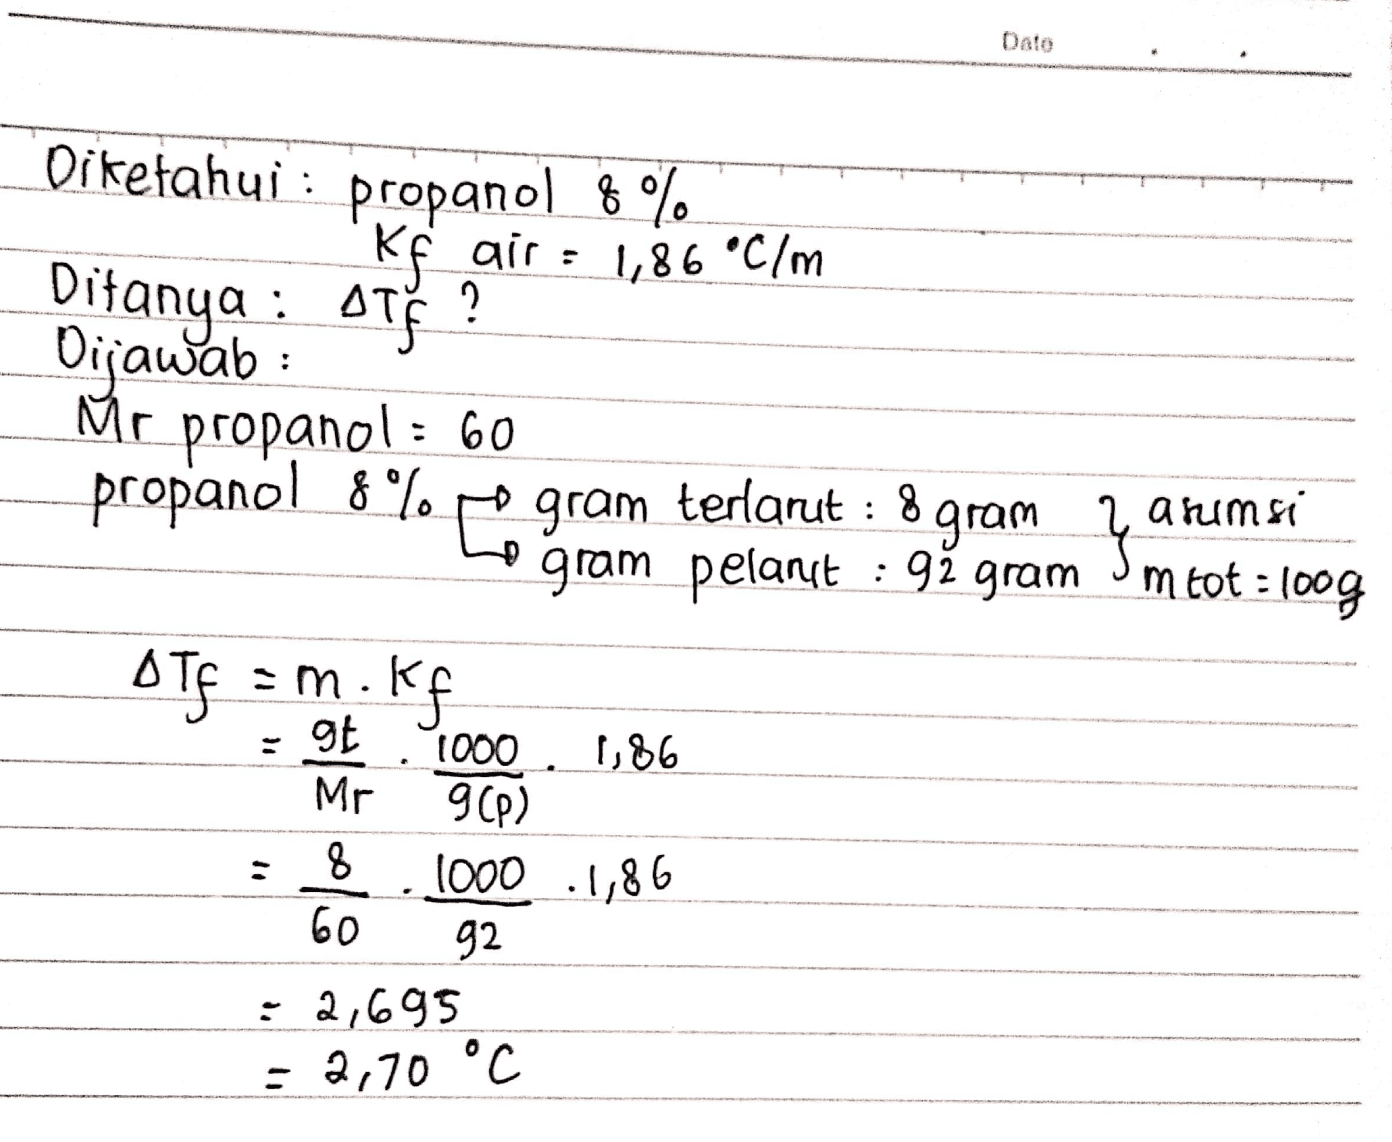 Date . .
Diketahui : propanol 8 %
Kf air = 1,86 °C/m
Ditanya : ΔTf ?
Dijawab :
Mr propanol = 60
propanol 8 % gram terlarut : 8 gram } asumsi
gram pelarut : 92 gram m tot = 100g
ΔTf = m . Kf
= gt/Mr . 1000/g(p) . 1,86
= 8/60 . 1000/92 . 1,86
= 2,695
= 2,70 °C